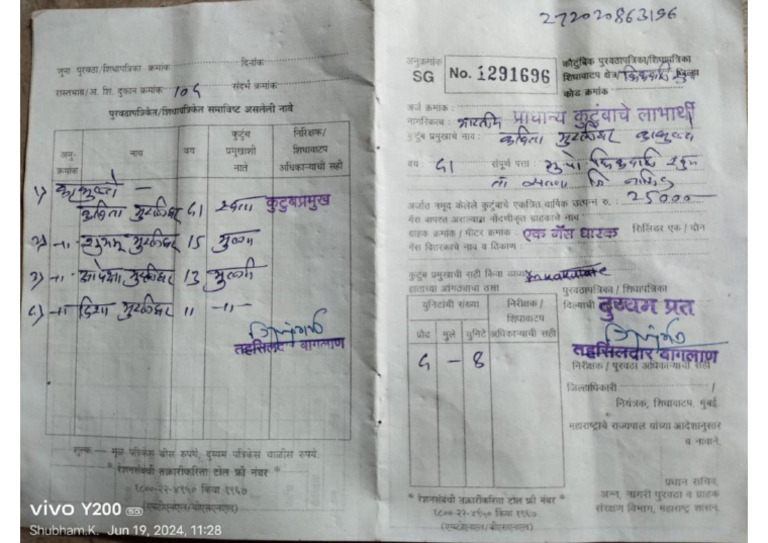 जूना पुरवठा/शिधापत्रिका क्रमांक दिनांक
रास्तभाव/अ. शि. दुकान क्रमांक १०५ संदर्भ क्रमांक
पुरवठापत्रिकेत/शिधापत्रिकेत समाविष्ट असलेली नावे
अनु-क्रमांक नाव वय कुटुंब प्रमुखाशी नाते निरिक्षक/शिधावाटप अधिकाऱ्याची सही
कविता मुरलीधर स्वतः कुटुंबप्रमुख
२) -॥- शुभम मुरलीधर 15 मुलगा
३) -॥- मुरलीधर 13 मुलगी
४) -॥- दिशा मुरलीधर 11 -॥-
तहसिलदार बागलाण
शुल्क — मूळ पत्रिकेस वीस रुपये, दुय्यम पत्रिकेस चाळीस रुपये.
* रेशनसंबंधी तक्रारीकरिता टोल फ्री नंबर *
१८००-२२-४९५० किंवा १९६७
(एमटीएनएल/बीएसएनएल)
vivo Y200 5G
Shubham.K. Jun 19, 2024, 11:28
272020863196
अनुक्रमांक
SG No. 1291696
कौटुंबिक पुरवठापत्रिका/शिधापत्रिका
शिधावाटप क्षेत्र/
कोड क्रमांक :
अर्ज क्रमांक :
प्राधान्य कुटुंबाचे लाभार्थी
नागरिकत्व : भारतीय
कुटुंब प्रमुखाचे नाव : कविता मुरलीधर
वय : संपूर्ण पत्ता :
अर्जात नमूद केलेले कुटुंबाचे एकत्रित वार्षिक उत्पन्न रु. : 25000
गॅस वापरत असल्यास नोंदणीकृत ग्राहकाचे नाव :
ग्राहक क्रमांक / मीटर क्रमांक : एक गॅस धारक सिलिंडर एक / दोन
गॅस वितरकाचे नाव व ठिकाण :
कुटुंब प्रमुखाची सही किंवा डाव्या
हाताच्या आंगठ्याचा ठसा
पुरवठापत्रिका / शिधापत्रिका
दिल्याची दुय्यम प्रत
युनिटांची संख्या निरीक्षक/शिधावाटप अधिकाऱ्याची सही
प्रौढ मुले युनिटे
४ - 8
तहसिलदार बागलाण
निरीक्षक / पुरवठा अधिकाऱ्याची सही
जिल्हाधिकारी /
नियंत्रक, शिधावाटप, मुंबई.
महाराष्ट्राचे राज्यपाल यांच्या आदेशानुसार
व नावाने.
प्रधान सचिव,
अन्न, नागरी पुरवठा व ग्राहक
संरक्षण विभाग, महाराष्ट्र शासन.
* रेशनसंबंधी तक्रारीकरिता टोल फ्री नंबर *
१८००-२२-४९५० किंवा १९६७
(एमटीएनएल/बीएसएनएल)